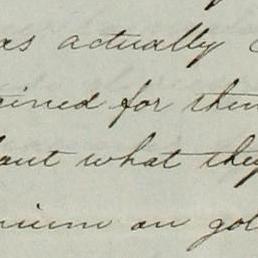 as actually
ined for them
but what they
ium on gol